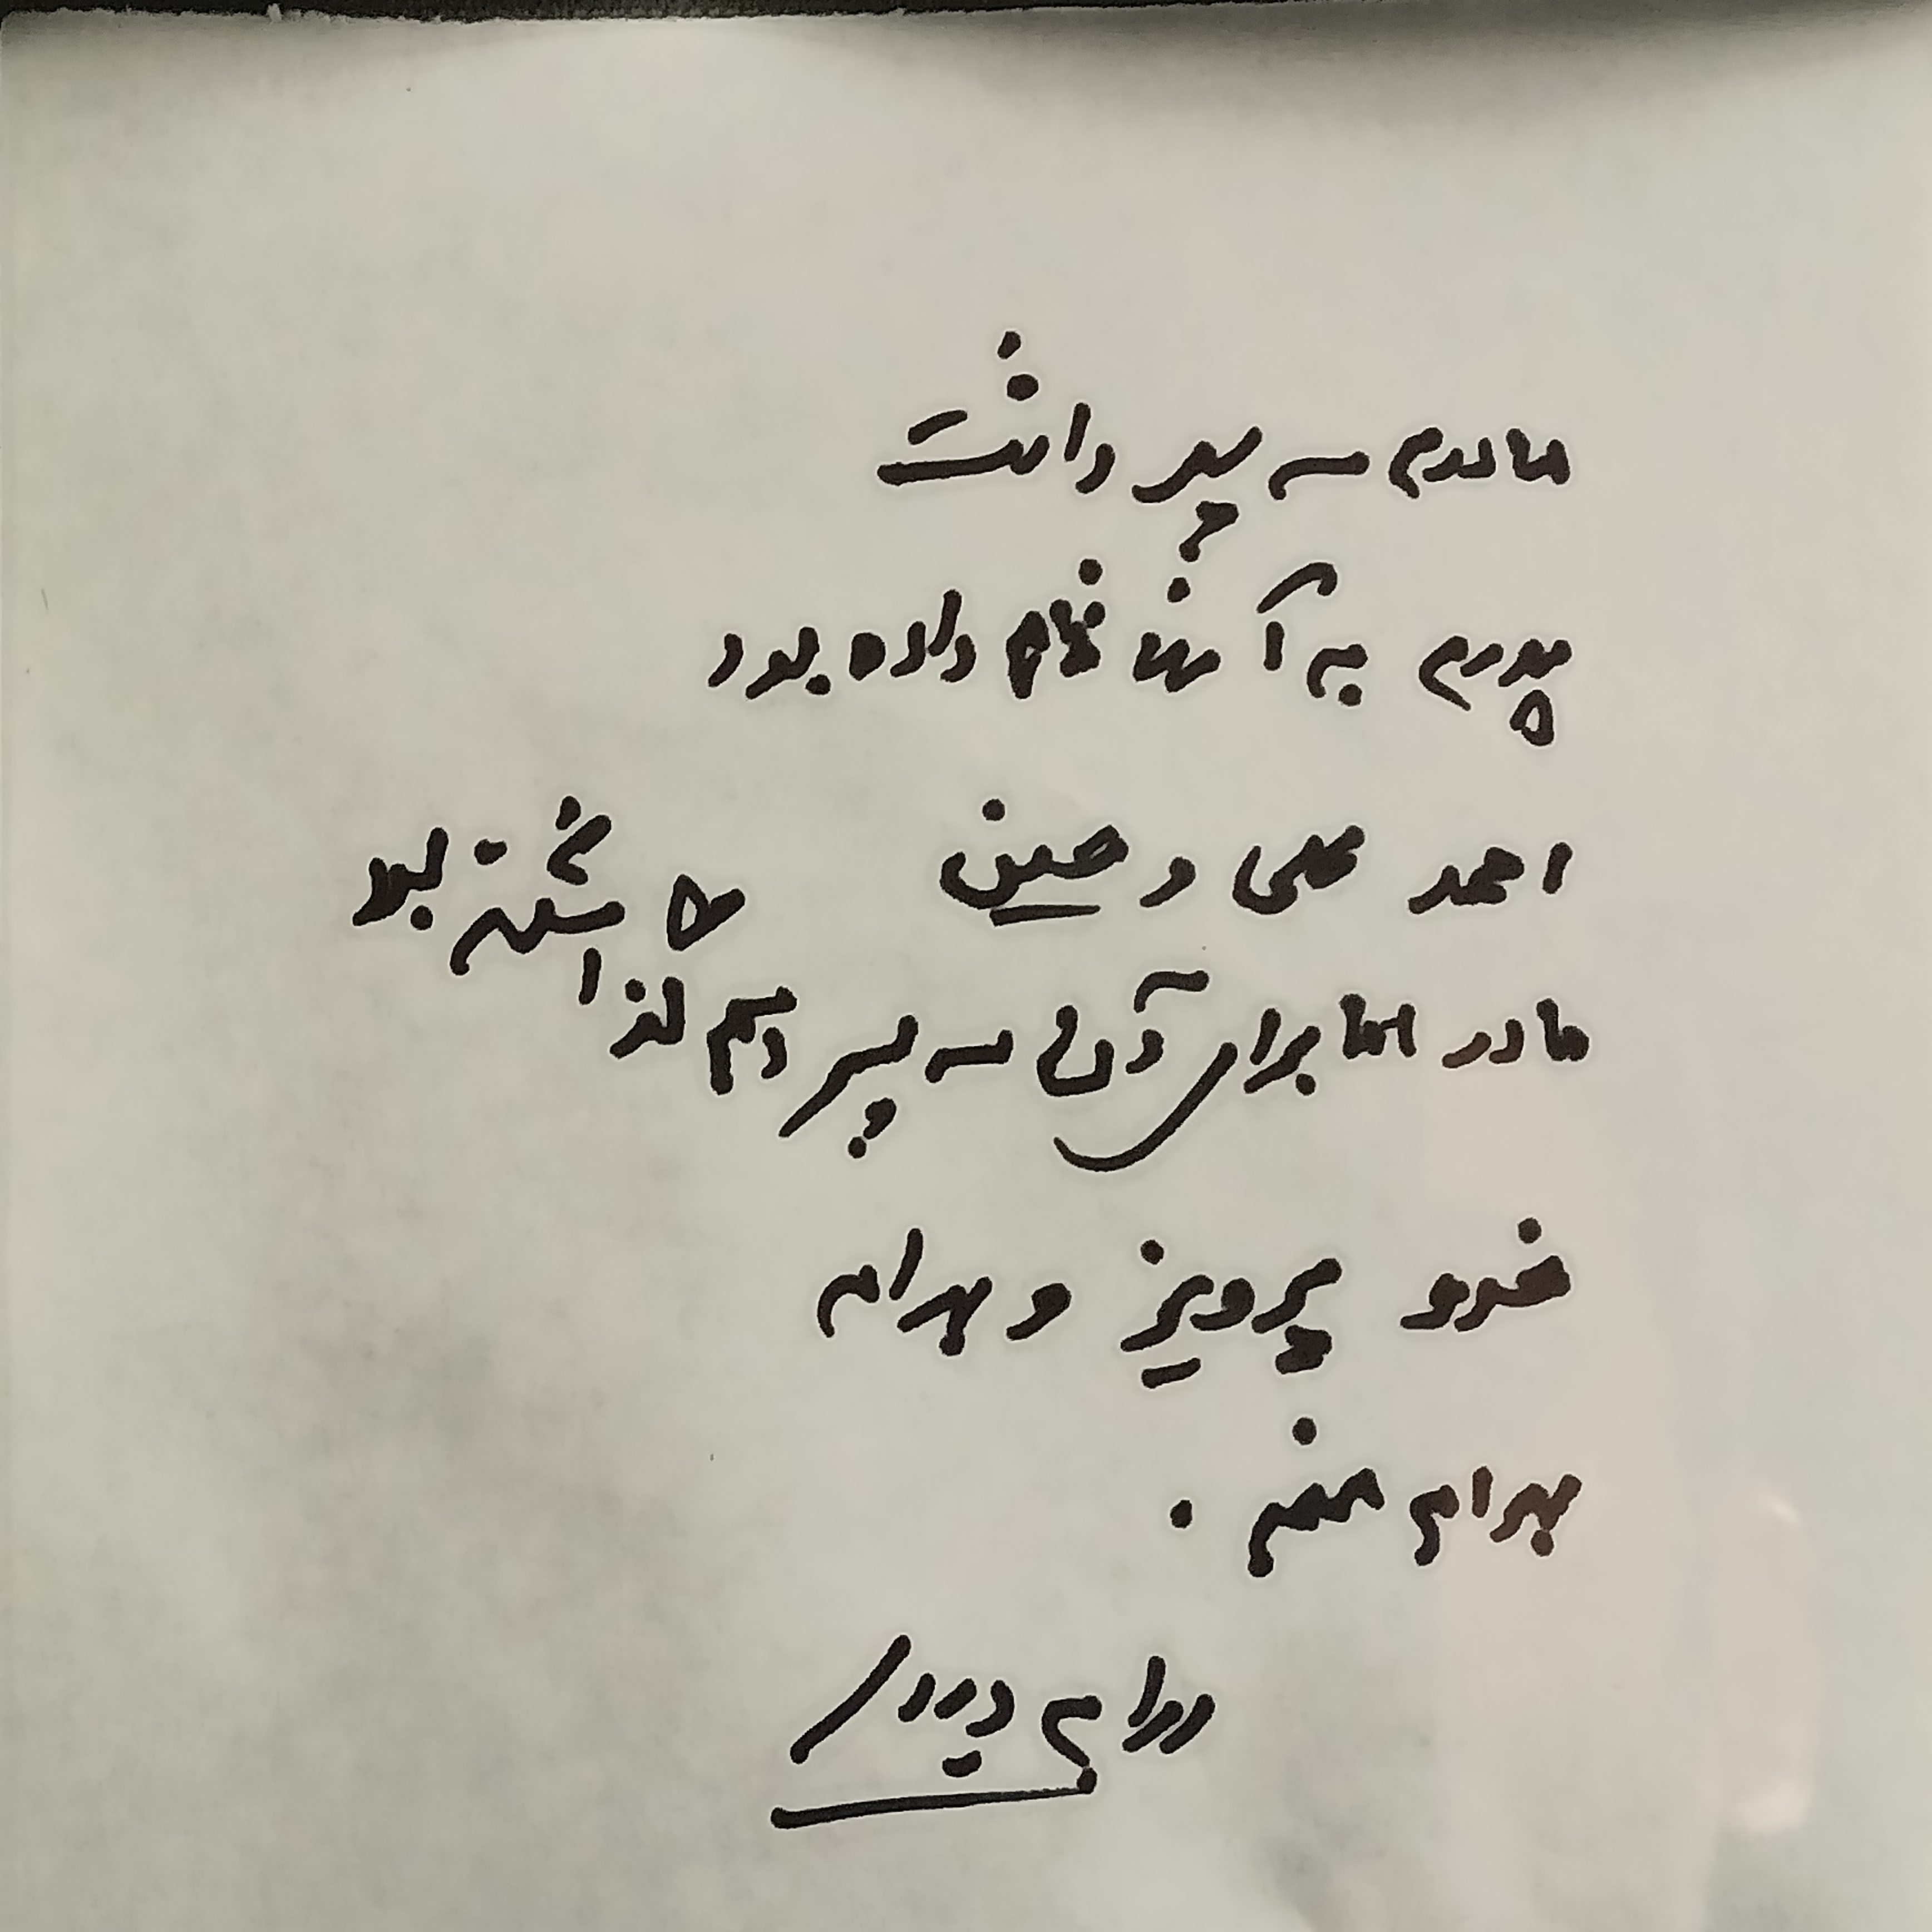 مادرم سه پسر داشت
پدرم به آنها نام داده بود
احمد علی و حسین
مادر اما برای آن سه پسر اسم گذاشته بود
خسرو پرویز و بهرام
بهرام منم .